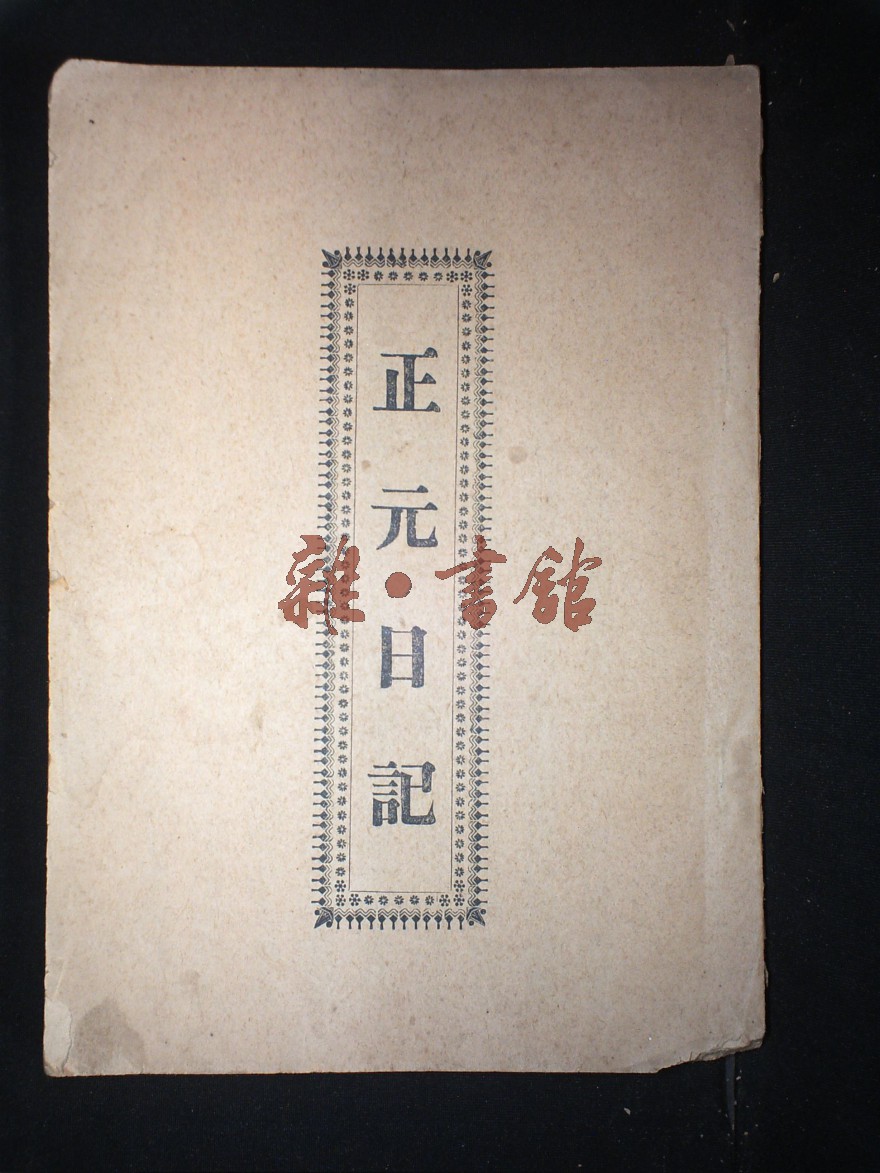 正元日記
雜·書館